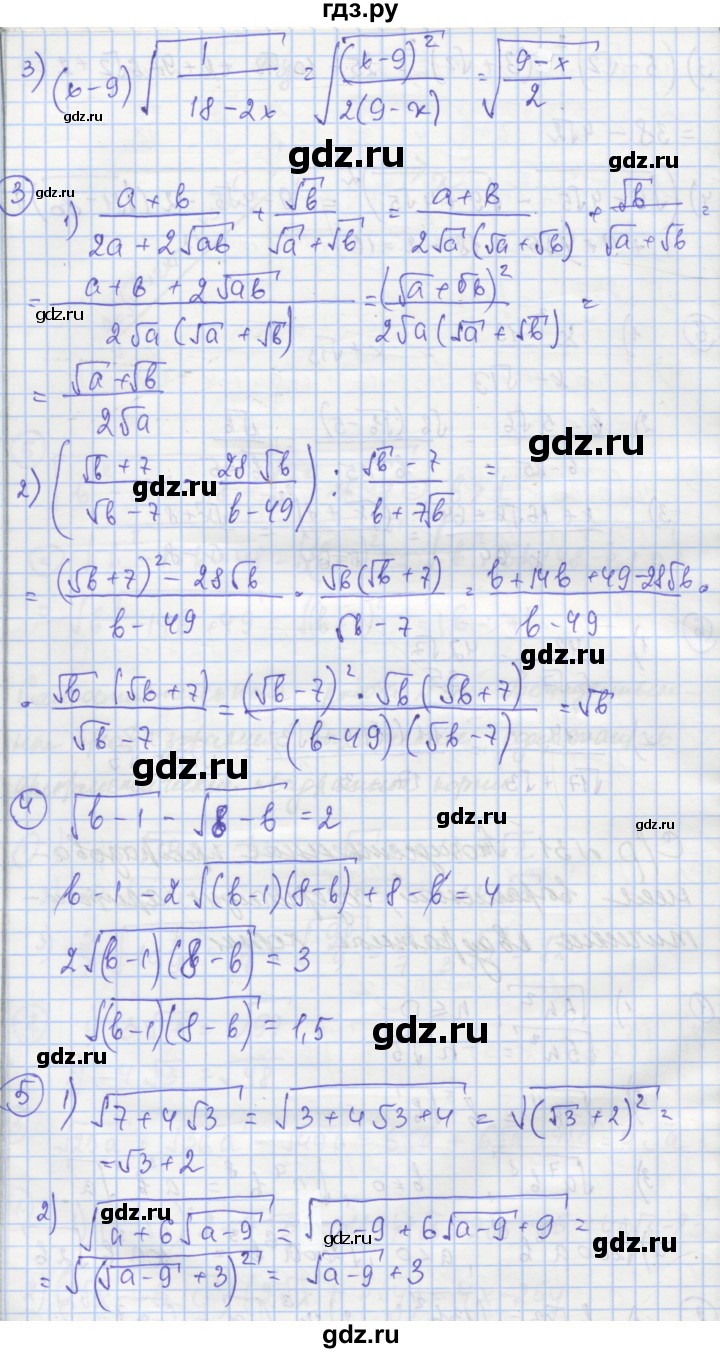 гдз.ру
3) (x-9)√(1/(18-2x)) = √((x-9)²/(2(9-x))) = √((9-x)/2)
gdz.ru
gdz.ru
gdz.ru
gdz.ru
gdz.ru
3 1) (a+b)/(2a+2√ab) + √b/(√a+√b) = (a+b)/(2√a(√a+√b)) + √b/(√a+√b) =
gdz.ru
= (a+b+2√ab)/(2√a(√a+√b)) = (√a+√b)²/(2√a(√a+√b)) =
gdz.ru
= (√a+√b)/(2√a)
gdz.ru
2) ((√b+7)/(√b-7) - 28√b/(b-49)) : (√b-7)/(b+7√b) =
gdz.ru
= ((√b+7)²-28√b)/(b-49) · √b(√b+7)/(√b-7) = (b+14b+49-28√b)/(b-49) ·
gdz.ru
· √b(√b+7)/(√b-7) = ((√b-7)²·√b(√b+7))/((b-49)(√b-7)) = √b
gdz.ru
4 √(b-1) - √(8-b) = 2
gdz.ru
b-1-2√((b-1)(8-b))+8-b=4
2√((b-1)(8-b)) = 3
√((b-1)(8-b)) = 1,5
gdz.ru
gdz.ru
5 1) √(7+4√3) = √(3+4√3+4) = √((√3+2)²) =
=√3+2
2) √(a+6√(a-9)) = √(a-9+6√(a-9)+9) =
gdz.ru
gdz.ru
gdz.ru
= √((√(a-9)+3)²) = √(a-9)+3
gdz.ru
gdz.ru
gdz.ru